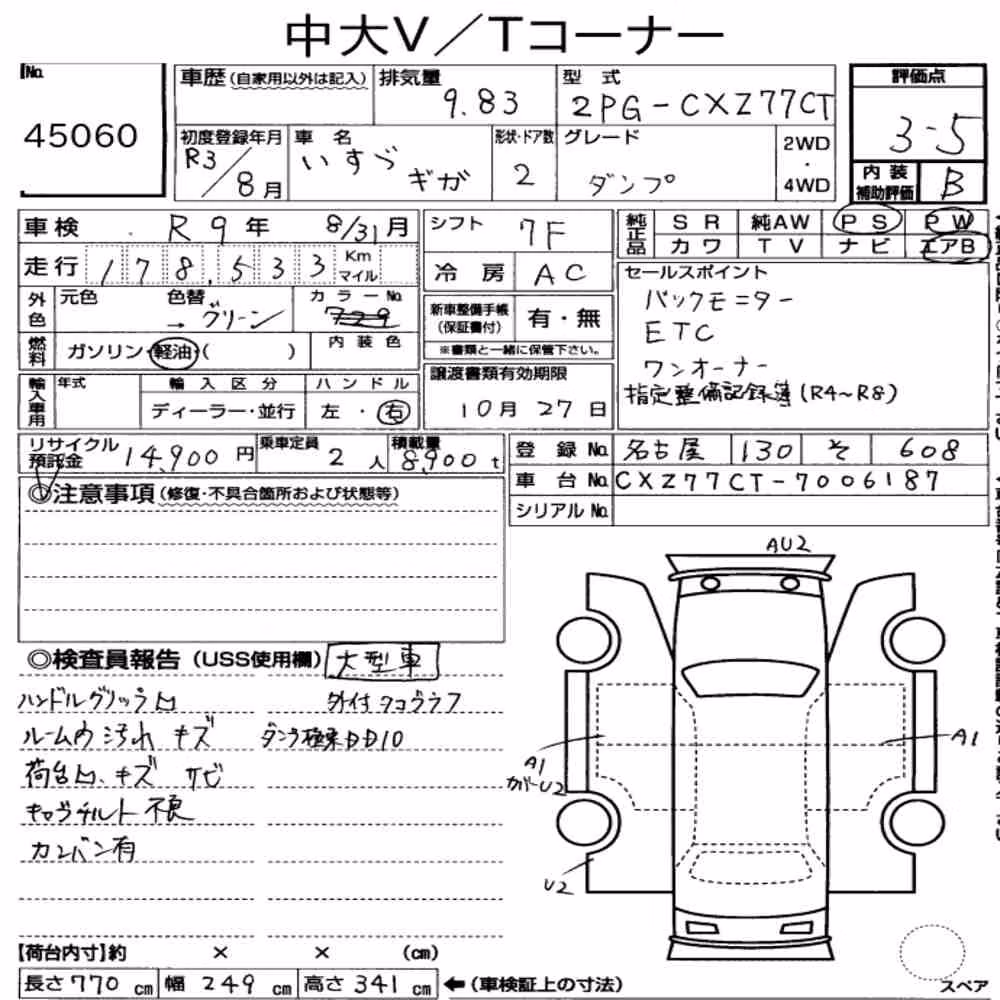 中大V／Tコーナー
No.
45060
車歴 (自家用以外は記入)
排気量
9.83
型 式
2PG-CXZ77CT
評価点
3-5
初度登録年月
R3／8月
車 名
いすゞ ギガ
形状・ドア数
2
グレード
ダンプ
2WD
・
4WD
内 装
補助評価
B
車検 R9年 8/31月
シフト 7F
純正品
SR 純AW PS PW
カワ TV ナビ エアB
走行 178,533 Km マイル
冷 房 AC
セールスポイント
バックモニター
ETC
ワンオーナー
指定整備記録簿(R4～R8)
外色 元色 色替 → グリーン
カラーNo.
729
新車整備手帳
(保証書付)
有・無
※書類と一緒に保管下さい。
燃料 ガソリン・軽油・( )
内 装 色
輸入車用 年式
輸 入 区 分
ディーラー・並行
ハ ン ド ル
左・右
譲渡書類有効期限
10月 27日
リサイクル
預託金 14,900 円
乗車定員
2 人
積載量
8,900 t
登 録 No. 名古屋 130 そ 608
車 台 No. CXZ77CT-7006187
シリアル No.
◎注意事項 (修復・不具合箇所および状態等)
◎検査員報告 (USS使用欄) 大型車
ハンドルグリップ凹
外付タコグラフ
ルーム内汚れ キズ
荷台凹、キズ サビ
キャブチルト不良
カンバン有
AU2
A1
A1
カバーU2
U2
【荷台内寸】約 × × (cm)
長さ 770 cm 幅 249 cm 高さ 341 cm
←(車検証上の寸法)
スペア